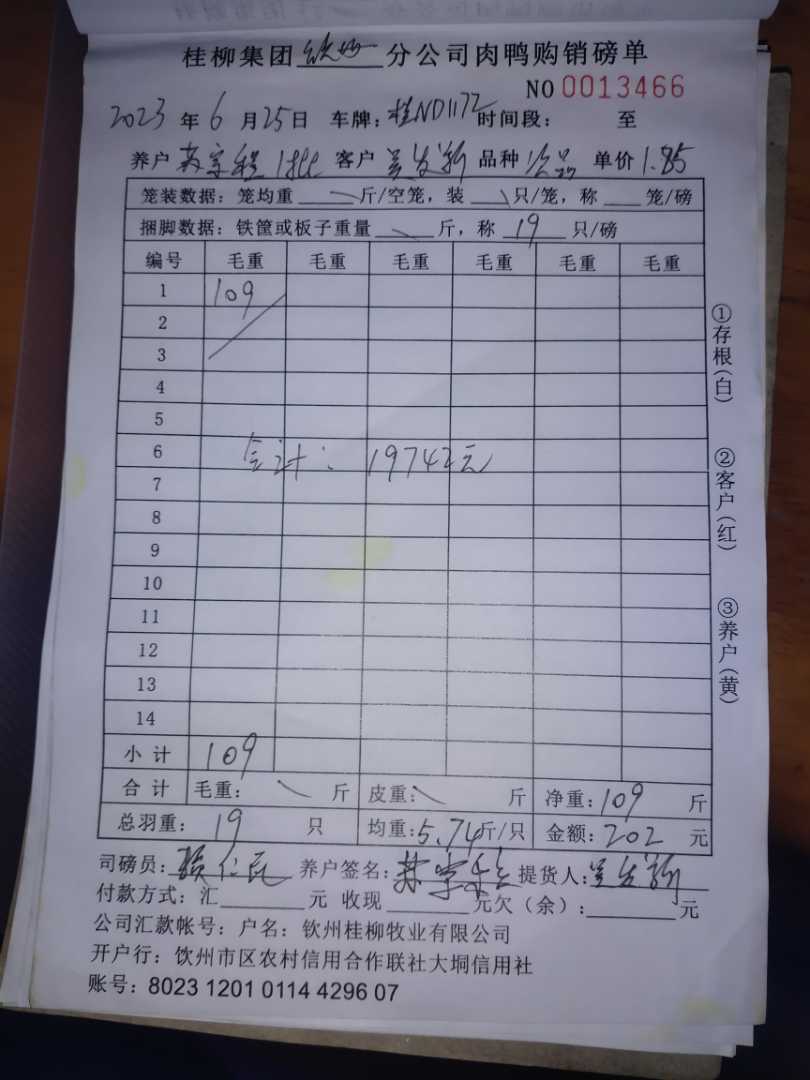 桂柳集团钦州分公司肉鸭购销磅单
NO 0013466
2023年6月25日 车牌：桂ND1172 时间段： 至
养户 苏家程 1批 客户 吴发新 品种 次品 单价 1.85
笼装数据：笼均重 斤/空笼，装 只/笼，称 笼/磅
捆脚数据：铁筐或板子重量 斤，称 19 只/磅
编号 毛重 毛重 毛重 毛重 毛重 毛重
1 109
2
3
4
5
6 合计：19742元
7
8
9
10
11
12
13
14
小计 109
合计 毛重： 斤 皮重： 斤 净重：109 斤
总羽重：19 只 均重：5.74斤/只 金额：202 元
司磅员： 养户签名： 提货人：吴发新
付款方式：汇 元 收现 元欠（余）： 元
公司汇款帐号：户名：钦州桂柳牧业有限公司
开户行：饮州市区农村信用合作联社大垌信用社
账号：8023 1201 0114 4296 07
①存根（白）
②客户（红）
③养户（黄）